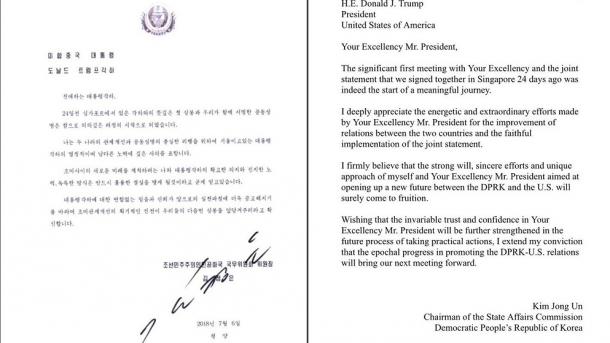 미합중국 대통령
도날드 트럼프각하
친애하는 대통령각하,
24일전 싱가포르에서 있은 각하와의 뜻깊은 첫 상봉과 우리가 함께 서명한 공동성
명은 참으로 의의깊은 려정의 시작으로 되였습니다.
나는 두 나라의 관계개선과 공동성명의 충실한 리행을 위하여 기울이고있는 대통령
각하의 열정적이며 남다른 노력에 깊은 사의를 표합니다.
조미사이의 새로운 미래를 개척하려는 나와 대통령각하의 확고한 의지와 진지한 노
력, 독특한 방식은 반드시 훌륭한 결실을 맺게 될것이라고 굳게 믿고있습니다.
대통령각하에 대한 변함없는 믿음과 신뢰가 앞으로의 실천과정에 더욱 공고해지기
를 바라며 조미관계개선의 획기적인 진전이 우리들의 다음번 상봉을 앞당겨주리라고 확
신합니다.
조선민주주의인민공화국 국무위원회 위원장
김 정 은
2018년 7월 6일
평 양
H.E. Donald J. Trump
President
United States of America
Your Excellency Mr. President,
The significant first meeting with Your Excellency and the joint
statement that we signed together in Singapore 24 days ago was
indeed the start of a meaningful journey.
I deeply appreciate the energetic and extraordinary efforts made
by Your Excellency Mr. President for the improvement of
relations between the two countries and the faithful
implementation of the joint statement.
I firmly believe that the strong will, sincere efforts and unique
approach of myself and Your Excellency Mr. President aimed at
opening up a new future between the DPRK and the U.S. will
surely come to fruition.
Wishing that the invariable trust and confidence in Your
Excellency Mr. President will be further strengthened in the
future process of taking practical actions, I extend my conviction
that the epochal progress in promoting the DPRK-U.S. relations
will bring our next meeting forward.
Kim Jong Un
Chairman of the State Affairs Commission
Democratic People's Republic of Korea